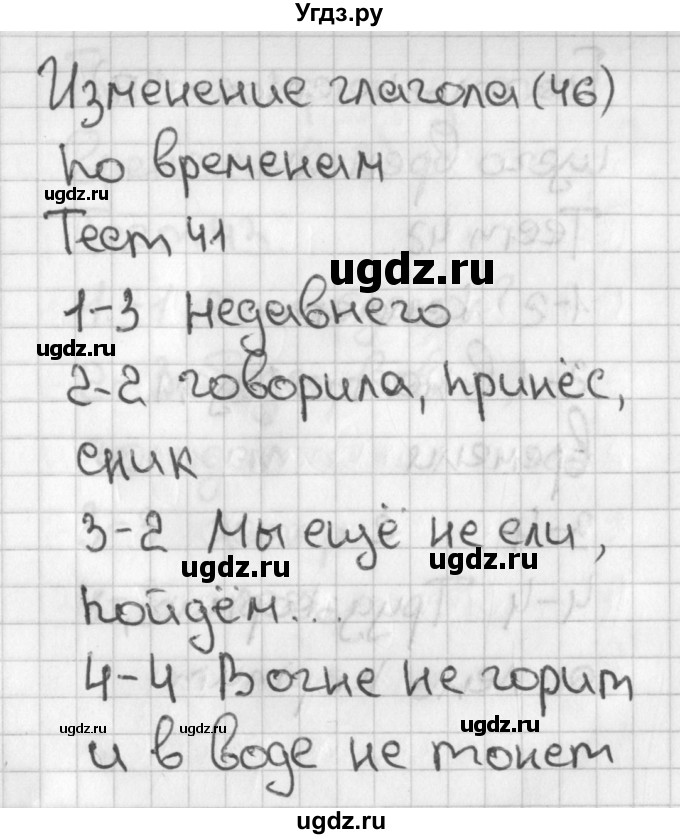 Угдз.ру
Изменение глагола (46)
по временам
ugdz.ru
Тест 41
ugdz.ru
1-3 недавнего
ugdz.ru
2-2 говорила, принёс,
сник
3-2 Мы ещё не ели,
ugdz.ru
ugdz.ru
пойдём....
4-4 В огне не горит
ugdz.ru ugdz.ru ugdz.ru
и в воде не тонет
ugdz.ru